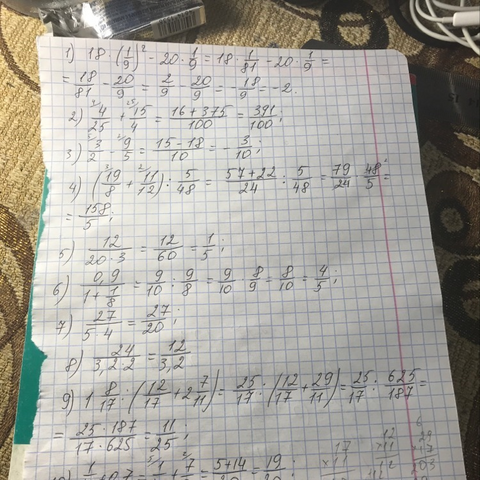 1) 18 · (1/9)² - 20 · 1/9 = 18 · 1/81 - 20 · 1/9 =
= 18/81 - 20/9 = 2/9 - 20/9 = -18/9 = -2.
2) 4/25 + 15/4 = (16 + 375)/100 = 391/100;
3) 3/2 - 9/5 = (15 - 18)/10 = -3/10;
4) (19/8 + 11/12) : 5/48 = (57 + 22)/24 : 5/48 = 79/24 · 48/5 =
= 158/5;
5) 12/(20 · 3) = 12/60 = 1/5;
6) 0,9/(1 + 1/8) = 9/10 : 9/8 = 9/10 · 8/9 = 8/10 = 4/5;
7) 27/(5 · 4) = 27/20;
8) 24/(3,2 · 2) = 12/3,2
9) 1 8/17 : (12/17 + 2 7/11) = 25/17 : (12/17 + 29/11) = 25/17 : 625/187 =
= (25 · 187)/(17 · 625) = 11/25;